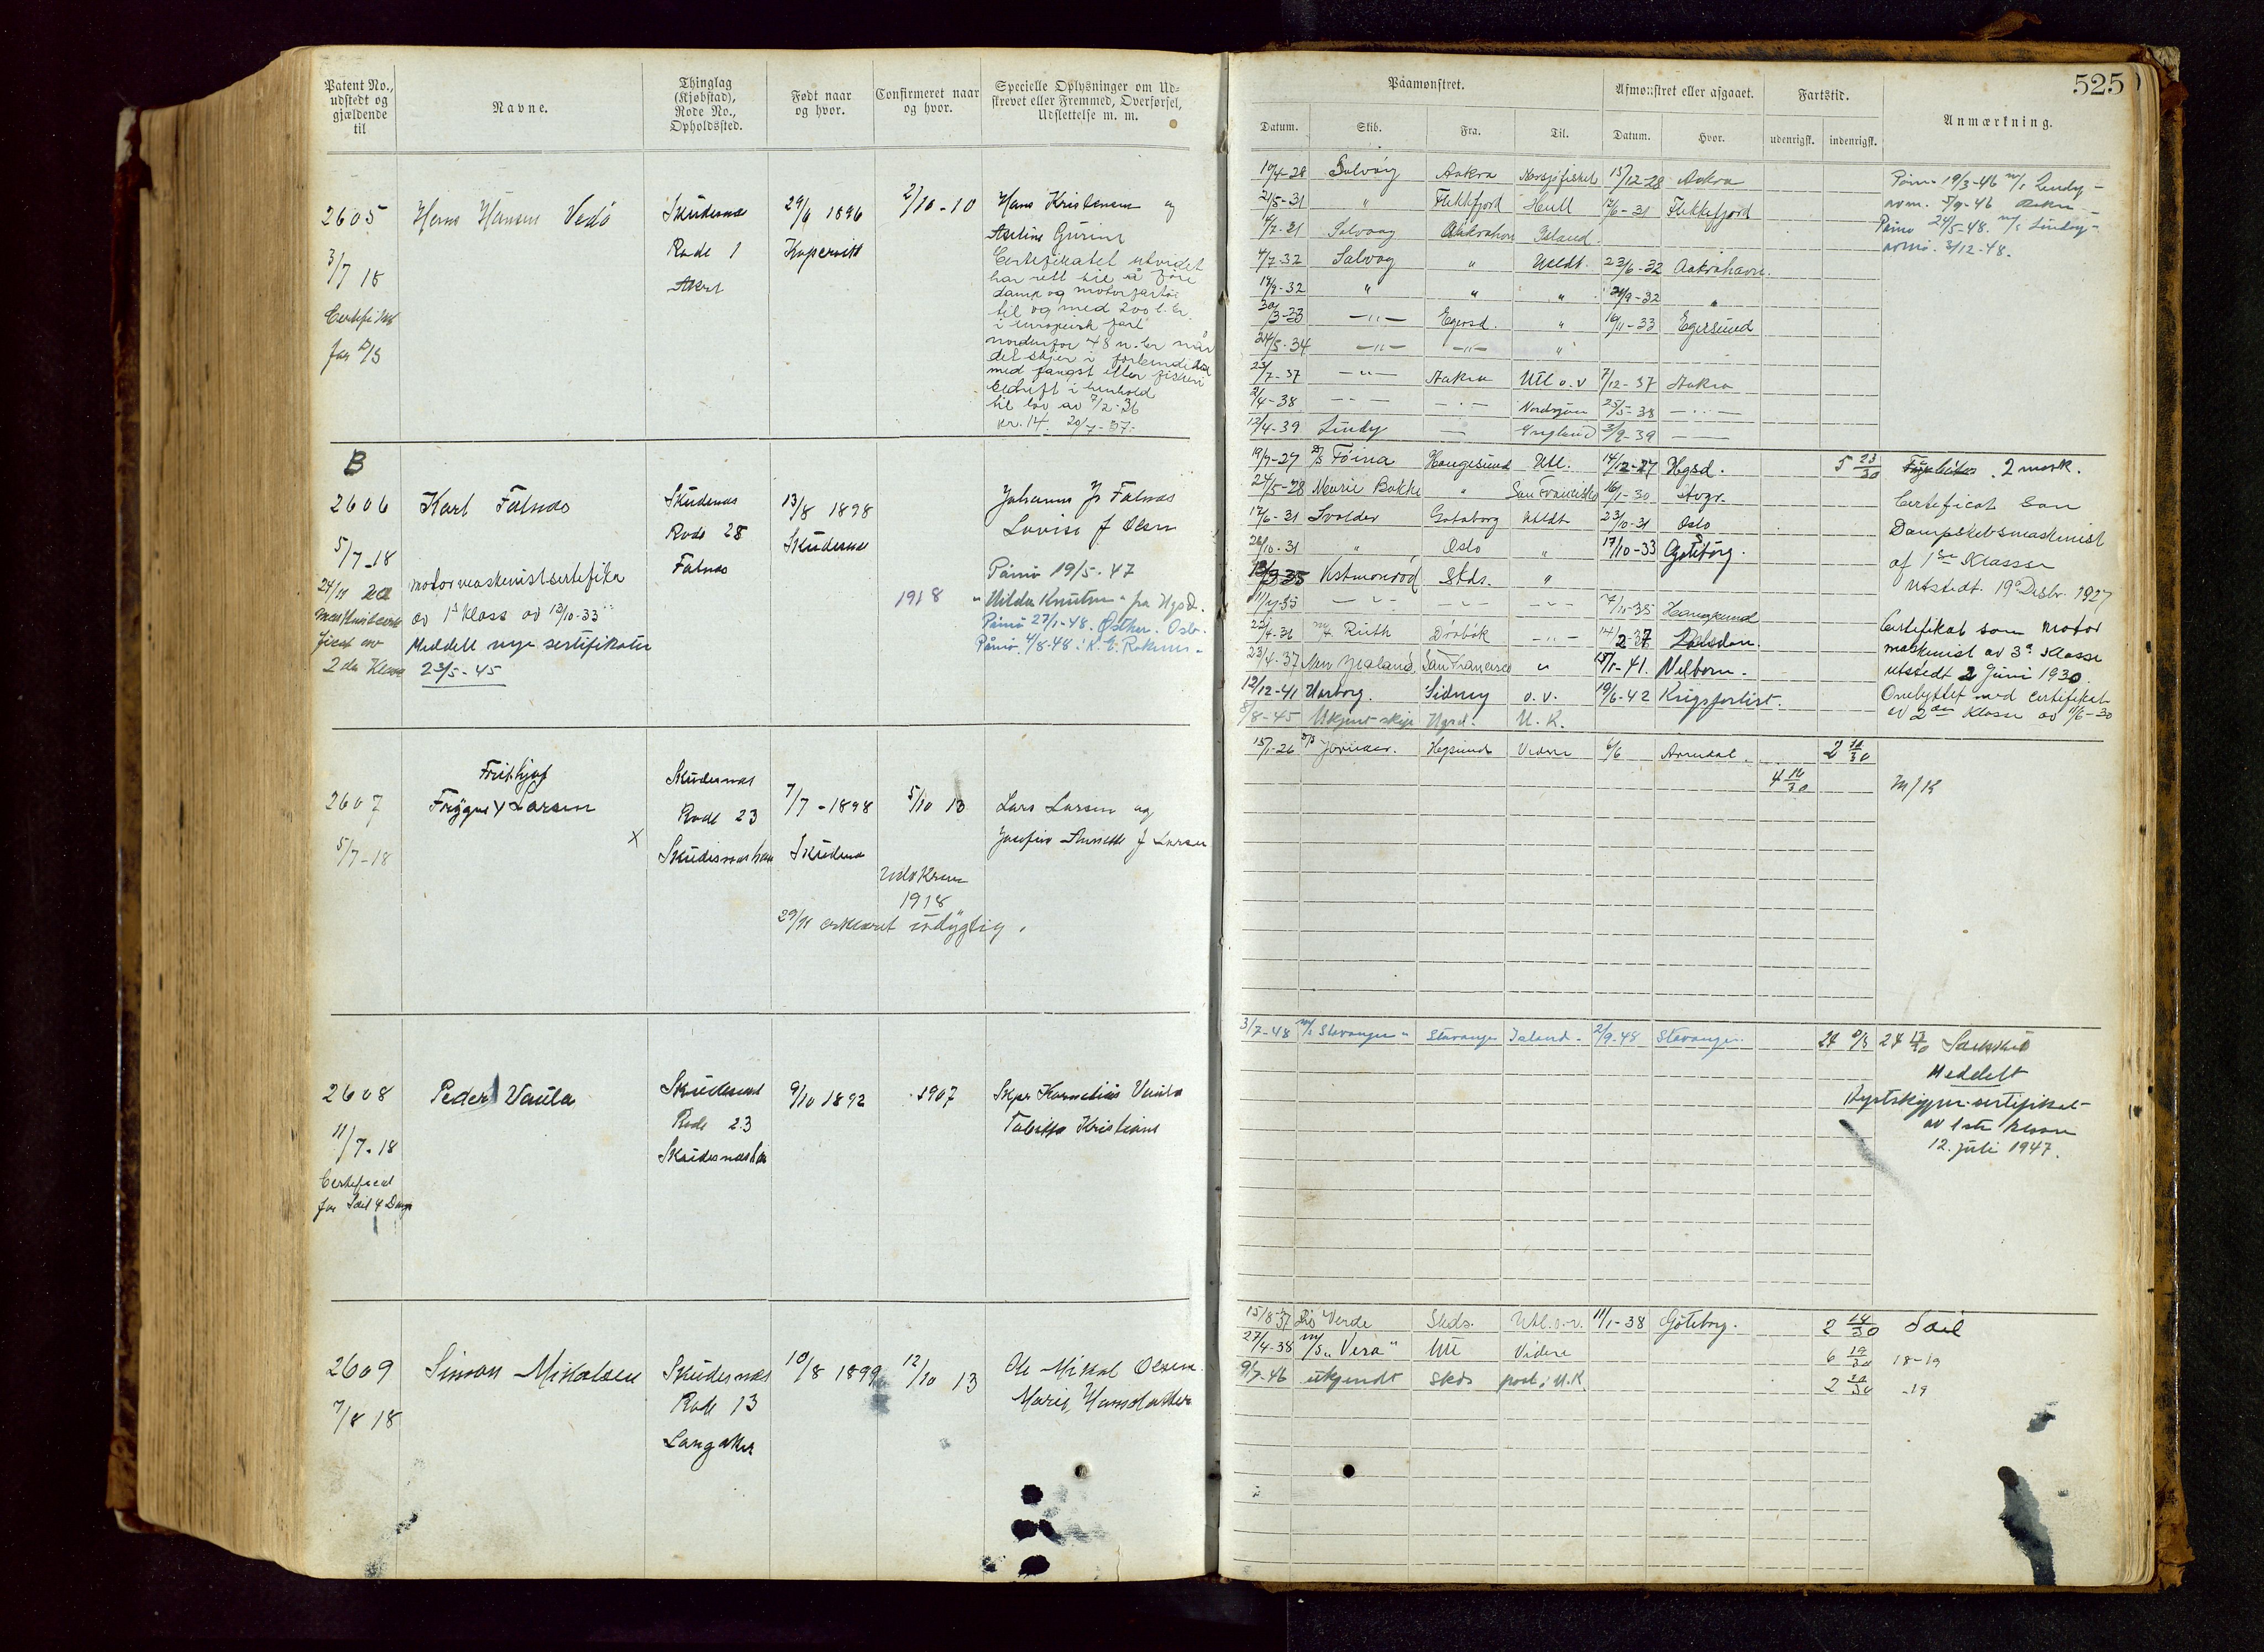 Patent No.,
udstedt og
gjældende
til
Navne.
Thinglag
(Kjøbstad),
Rode No.,
Opholdssted.
Født naar
og hvor.
Confirmeret naar
og hvor.
Specielle Oplysninger om Ud-
skrevet eller Fremmed, Overførsel,
Udslettelse m. m.
2605
3/7 18
Hans Hansen Vedø
Skudesnes
Rode 1
Akra
29/9 1896
Kopervik
2/10-10
Hans Kristensen og
Certifikatet utvidet
har rett til å føre
damp og motorfartøi
til og med 200 b. br.
i europeisk fart
nordenfor 48 n. br når
det skjer i forbindelse
med fangst eller fiskeri
bedrift i henhold
til lov av 7/2-36
kr. 14. 20/7-37.
B
2606
5/7-18
2den Klasse
Karl Falnes
motormaskinistsertifikat
av 1s Klass av 13/10-33
Meddelt nye sertifikater
23/5-45
Skudesnes
Rode 28
Falnes
13/8 1898
Skudesnes
1918
Johannes Js Falnes
Lovise f Olsen
Påmø 19/5-47
"Hilda Knutsen" fra Hgsd.
Påmø 27/1-48. Esther. Oslo.
Påmø. 4/8-48.
2607
5/7-18
Frithjof
Larsen
x
Skudesnes
Rode 23
Skudesneshavn
7/7-1898
Skudesnes
5/10 13
1918
29/11 erklæret udygtig.
Lars Larsen og
Josefine f Larsen
2608
11/7-18
Certificat
for Seil & Damp
Peder Vaula
Skudesnes
Rode 23
Skudesneshavn
9/10 1892
1907
Skpr Kornelius Vaula
Kristiane
2609
7/8 18
Simon Mikalsen
Skudesnes
Rode 13
Langaker
10/8 1899
12/10 13
Ole Mikal Olsen
Marie Hansdatter
525
Paamønstret.
Afmønstret eller afgaaet.
Fartstid.
Anmærkning.
Datum.
Skib.
Fra.
Til.
Datum.
Hvor.
udenrigsk.
indenrigsk.
10/4-28 Solvåg Aakra Nordsjøfisket 15/12-28 Aakra
21/5-31 " Flekkefjord Hull 12/6-31 Flekkefjord
14/7-31 Solvaag Aakrahavn Island.
4/7-32 Solvåg " Utldt. 23/6-32 Aakrahavn.
17/9-32 " " " 24/9-32 "
30/3-33 -"- Egersd. " 16/11-33 Egersund
24/5-34 -"- -"- "
23/7-37 -"- Aakra Utl o.v 7/12-37 Aakra
2/4-38 Nordsjøen 25/5-38
12/4-39 Lindy England 2/9-39
Påm. 19/3-46 m/s Lindy
avm. 5/9-46
Påmø 24/5-48. m/s Lindy
avmø. 3/12-48.
19/9-27 D/S Foina Haugesund Utl. 14/12-27 Hgsd. 5 23/30
24/5-28 Marie Bakke " San Francisko 16/1-30 Stvgr.
17/6-31 Svolder Gøteborg Utldt 23/10-31 Oslo
26/10-31 " Oslo " 17/10-33 Gøteborg.
13/3-35 Vestmanrød Skds. "
11/7-35 7/11-35 Haugesund
22/4-36 m/t Ruth Drøbak -"- 14/2-37 London.
23/4-37 New Zealand San Francisco " 15/1-41. Melborn.
12/12-41 Varborg. Sidney o.v. 19/6-42 Krigsforlist.
8/8-45 Ukjent skip Hgsd. U.K.
2 mask.
Certeficat som
Dampskibsmaskinist
af 1ste Klasse
utstedt 19. Desbr. 1927
Certifikat som motor
maskinist av 3e Klasse
utstedt 2 Juni 1930.
Ombyttet med certifikat
av 2den Klasse av 11/6-30
15/1-26 D/S Hgsund Videre 6/6 Arendal. 2 12/30
4 16/30
M/K
3/7-48 m/s Stavanger Stavanger Island 2/9-48 Stavanger. 24
Meddelt
Kystskipper-sertifikat
av 1ste klasse
12. juli 1947.
15/8-37 D/S Verde Skds. Utl.o.v. 11/1-38 Gøteborg. 2 14/30 Seil
27/4-38 m/s "Vera" Utl Videre 6 19/30 18-19
9/7-46 ukjendt Skds port i U.K. 2 -19